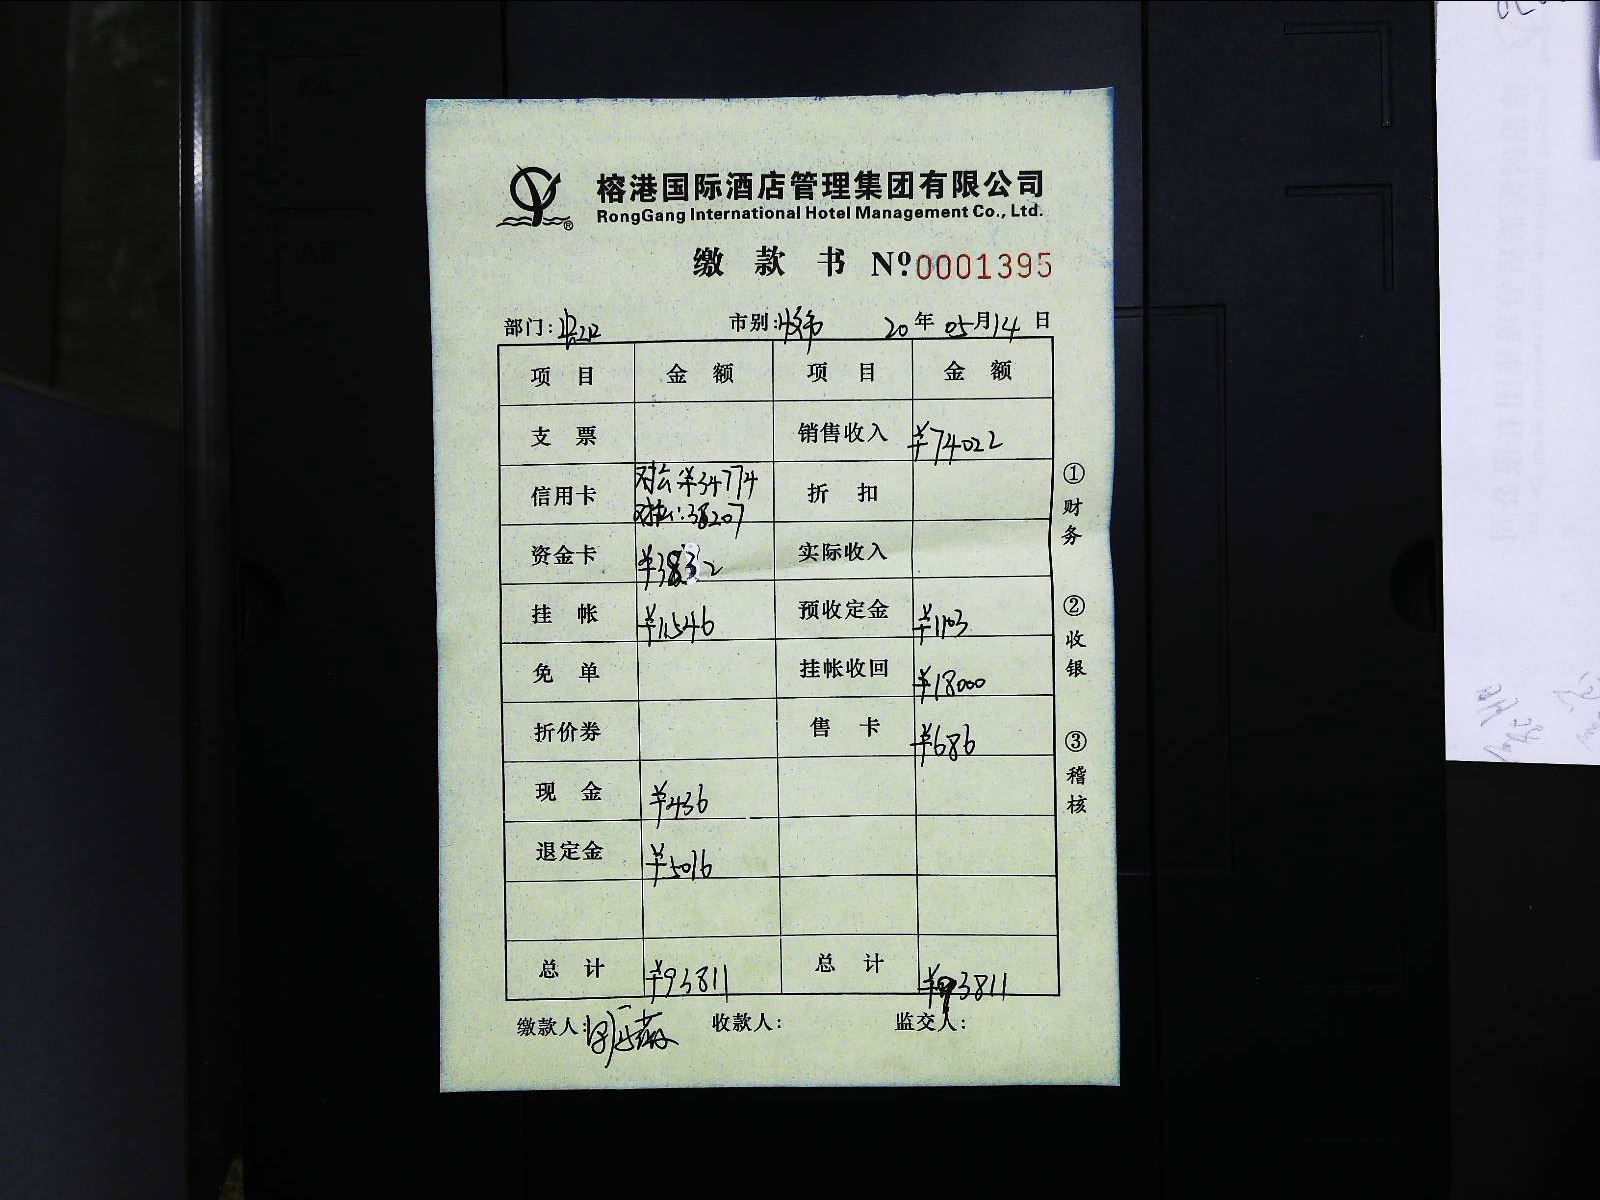 榕港国际酒店管理集团有限公司
RongGang International Hotel Management Co., Ltd.
缴款书 Nº 0001395
部门: 市别: 20年05月14日
项目 金额 项目 金额
支票 销售收入 ¥74022
信用卡 对公:¥34774 折扣
:38207
资金卡 ¥3832 实际收入
挂帐 ¥11546 预收定金 ¥1103
免单 挂帐收回 ¥18000
折价券 售卡 ¥686
现金 ¥436
退定金 ¥5016
总计 ¥93811 总计 ¥93811
缴款人: 收款人: 监交人:
①财务 ②收银 ③稽核